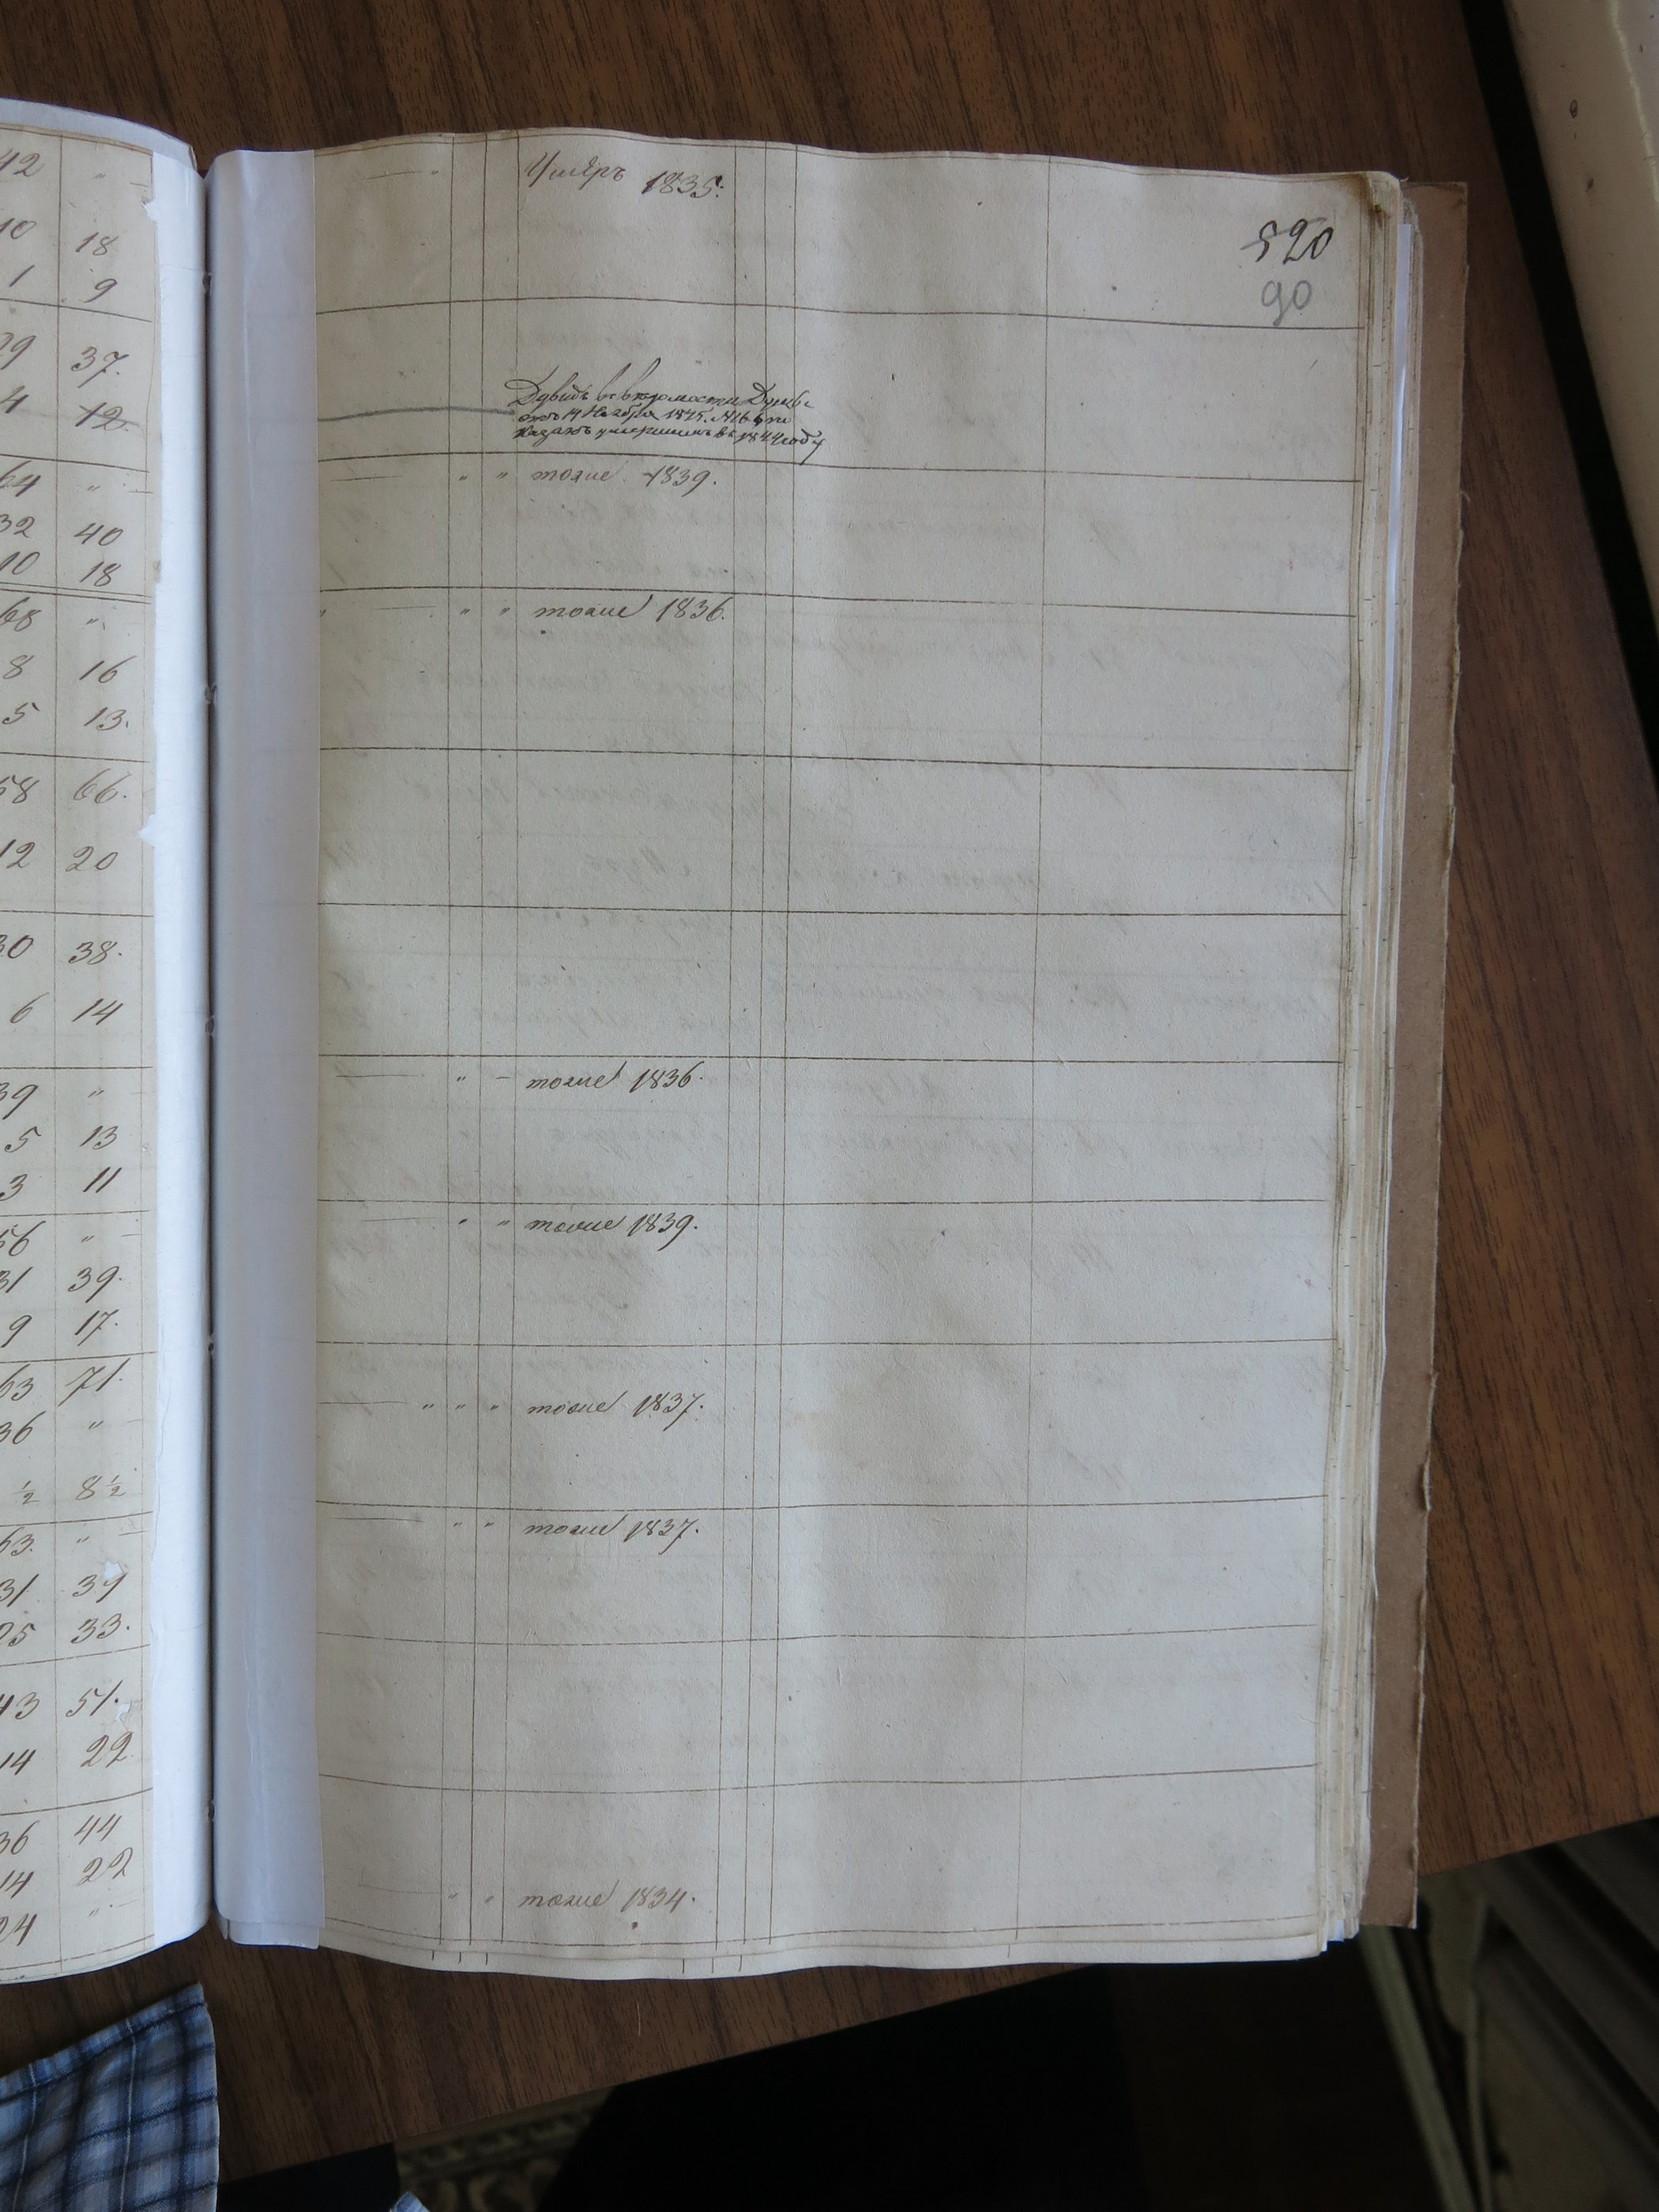 42 "
10 18
1 9
29 37.
4 12.
64 "
32 40
10 18
68 "
8 16
5 13.
58 66.
12 20
30 38.
6 14
39 "
5 13
3 11
56 "
31 39.
9 17.
63 71.
36 "
½ 8½
63. "
31 39
25 33.
43 51.
14 22.
36 44
14 22
24 "
" Умеръ 1835:
520
90
Дувидъ въ Думы
отъ 14 Ноября 1845. №
умершимъ въ 1844 году
" " тоже 1839.
" " тоже 1836.
" – тоже 1836.
" " тоже 1839.
" " " тоже 1837.
" " тоже 1837.
" " тоже 1834.